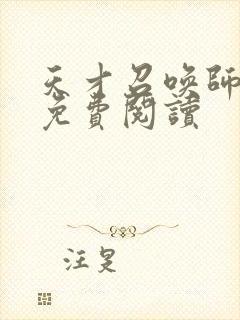 天才召喚師
免費閱讀
汪昃